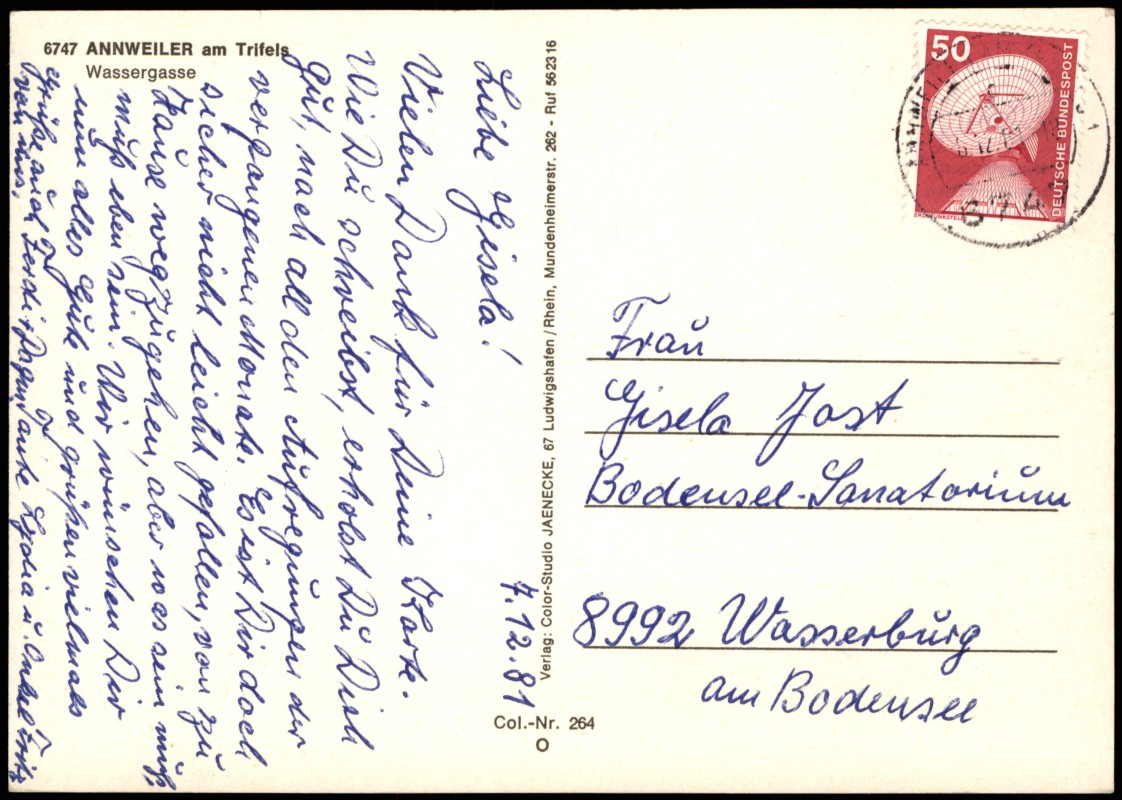 6747 ANNWEILER am Trifels
Wassergasse
7.12.81
Liebe Gisela!
Vielen Dank für Deine Karte.
Wie Du schreibst, erholst Du Dich
gut, nach all den Aufregungen der
vergangenen Monate. Es ist Dir doch
sicher nicht leicht gefallen, von zu
Hause wegzugehen, aber was sein muß
muß eben sein. Wir wünschen Dir
nun alles Gute und grüßen vielmals
Tante Lydia u. Onkel Fritz
Grüße auch Ferdi + Dagmar
von uns.
Verlag: Color-Studio JAENECKE, 67 Ludwigshafen/Rhein, Mundenheimerstr. 262 - Ruf 562316
Col.-Nr. 264
O
50
DEUTSCHE BUNDESPOST
ERDFUNKSTELLE
Frau
Gisela Jost
Bodensee-Sanatorium
8992 Wasserburg
am Bodensee